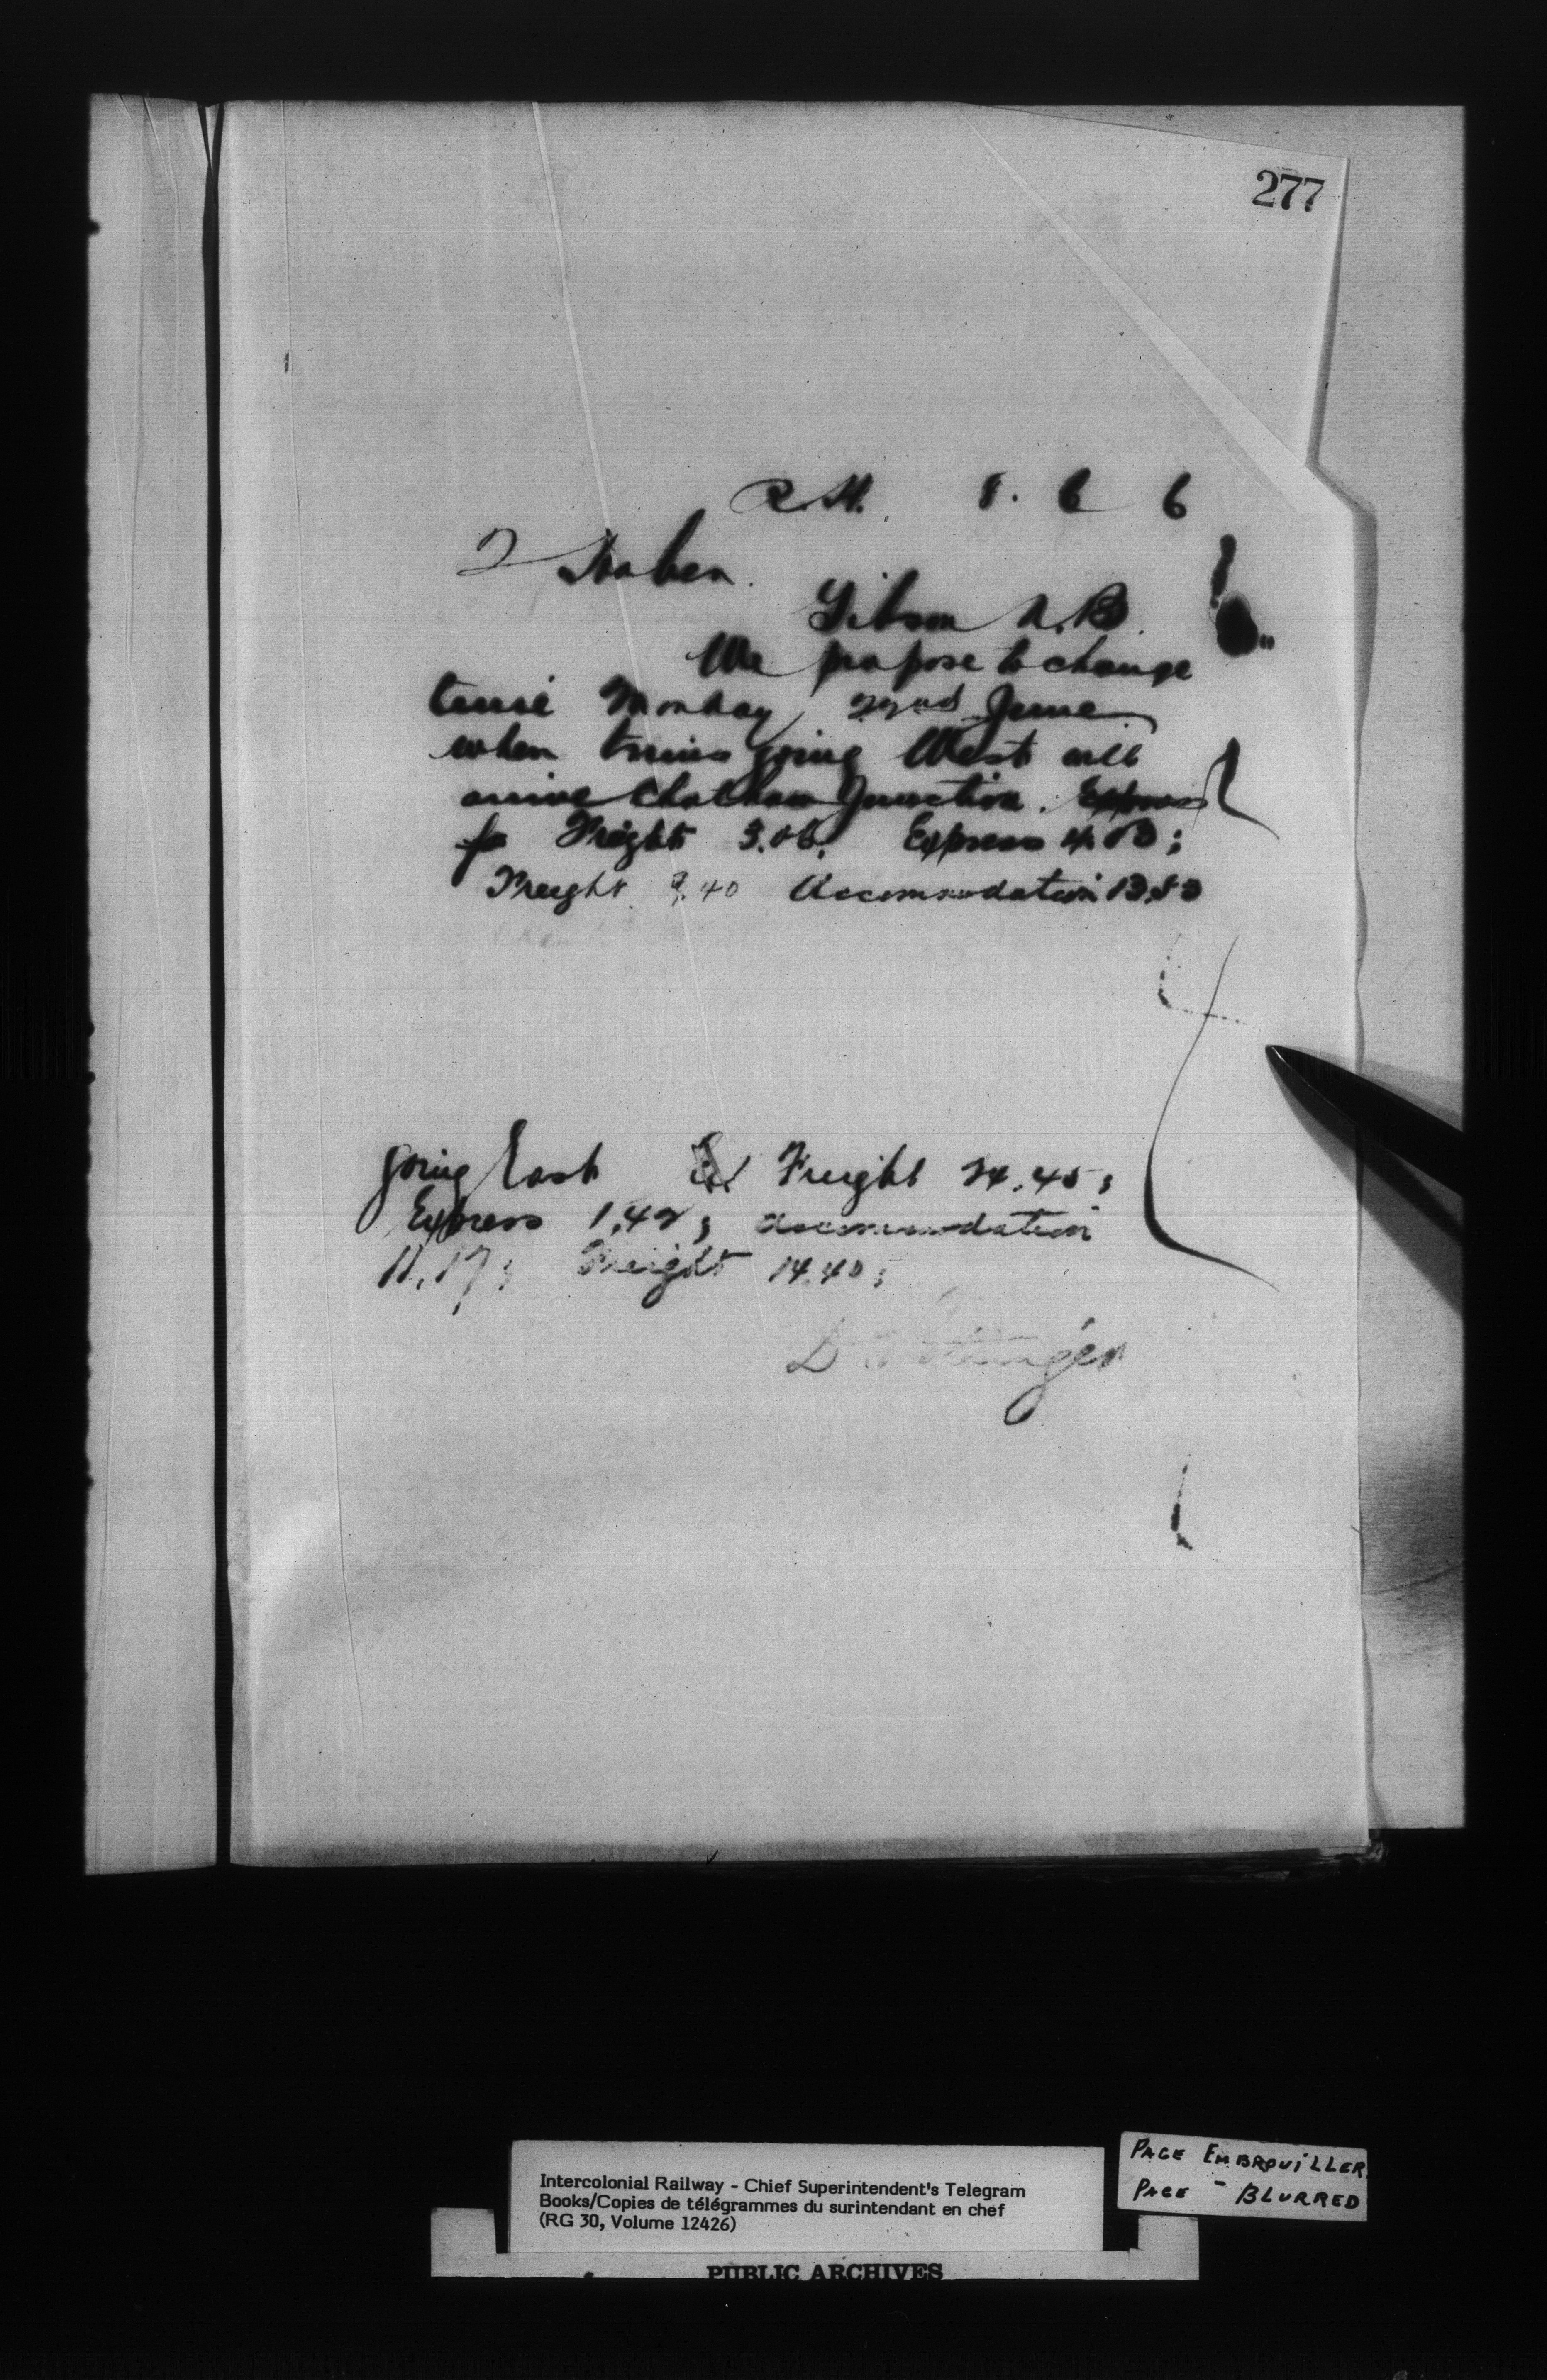 277
R.H. 8. 6 6
T Hoben.
Gibson N.B.
We propose to change
time Monday 22nd June
when trains going West will
arrive Chatham Junction. Express
Freight 3.06. Express 4.03;
Freight 9.40 Accommodation 13.53
going East Freight 24.45;
Express 1.42; accommodation
11.17; Freight 14.40;
D Pottinger
Intercolonial Railway - Chief Superintendent's Telegram
Books/Copies de télégrammes du surintendant en chef
(RG 30, Volume 12426)
PAGE EMBROUILLER
PAGE - BLURRED
PUBLIC ARCHIVES